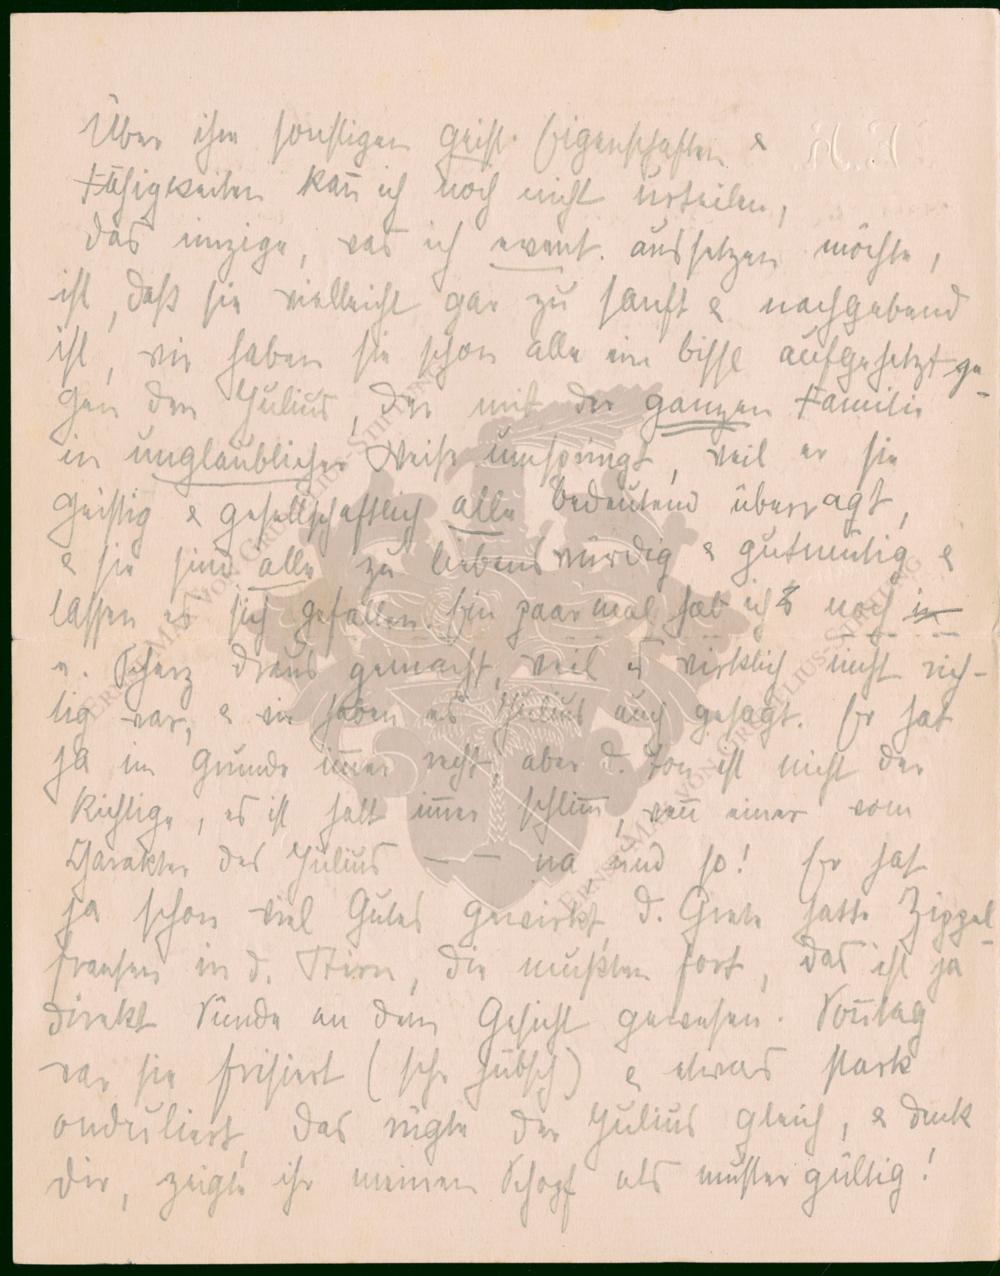 Über ihre sonstigen geist. Eigenschaften &
Fähigkeiten kan̅ ich noch nicht urteilen,
das einzige, was ich event. aussetzen möchte,
ist, daß sie vielleicht gar zu sanft & nachgebend
ist, wir haben sie schon alle ein bissl aufgehetzt ge-
gen den Julius, der mit der ganzen Familie
in unglaublicher Weise umspringt, weil er sie
geistig & gesellschaftlich alle bedeutend überragt,
& sie sind alle zu liebenswürdig & gutmütig &
lassen es sich gefallen. Ein paar mal hab ichs noch
n. Scherz draus gemacht, weil es wirklich nicht rich-
tig war, & wir haben es Julius auch gesagt. Er hat
ja im Grunde im̅er recht aber d. Ton ist nicht der
Richtige, es ist halt im̅er schlim̅, wen̅ einer vom
Charakter des Julius — — na und so! Er hat
ja schon viel Gutes gewirkt, d. Grete hatte Zippel-
fransen in d. Stirn, die mußten fort, das ist ja
direkt Sünde an dem Gesicht gewesen. Son̅tag
war sie frisiert (sehr hübsch) & etwas stark
onduliert, das rügte der Julius gleich, & denk
dir, zeigte ihr meinen Schopf als mustergültig!
E. K.
ERNST-MAX VON GRUNELIUS-STIFTUNG
ERNST-MAX VON GRUNELIUS-STIFTUNG